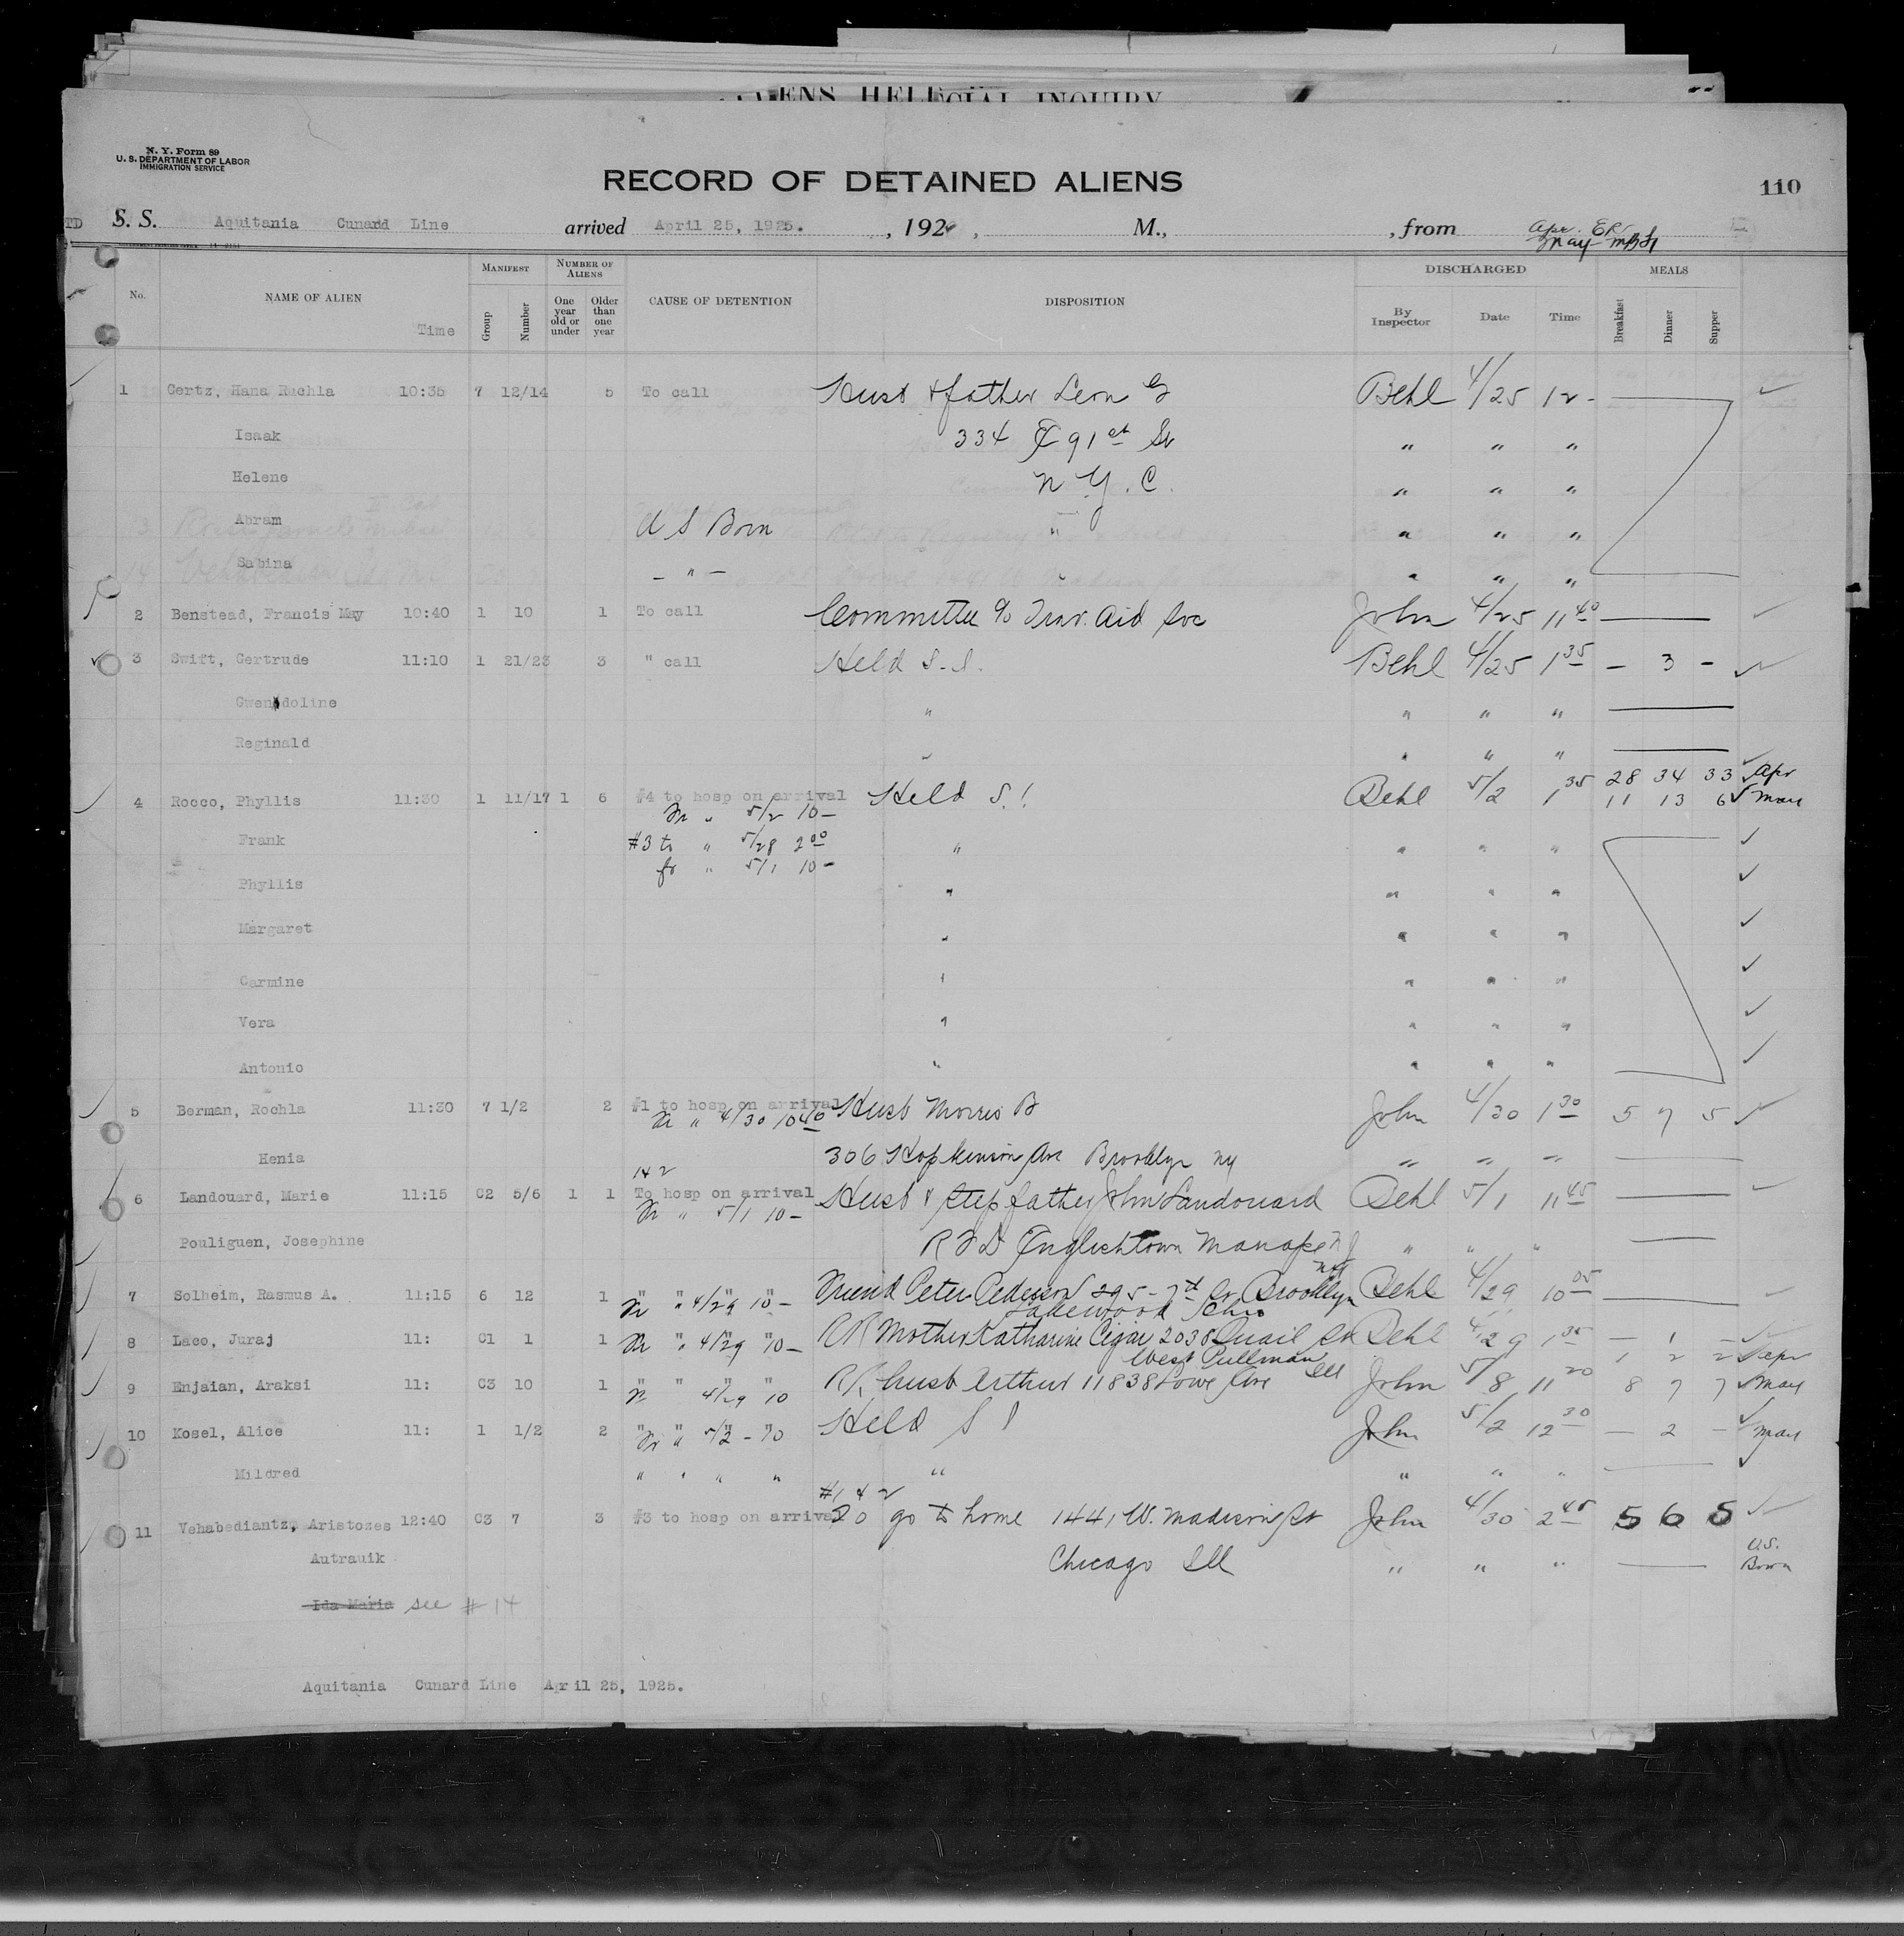 N. Y. Form 89
U. S. DEPARTMENT OF LABOR
IMMIGRATION SERVICE
RECORD OF DETAINED ALIENS
110
S. S. Aquitania Cunard Line arrived April 25, 1925. , 192 , M., , from
No. NAME OF ALIEN Time MANIFEST Group Number NUMBER OF ALIENS One year old or under Older than one year CAUSE OF DETENTION DISPOSITION DISCHARGED By Inspector Date Time MEALS Breakfast Dinner Supper
1 Gertz, Hana Ruchla 10:35 7 12/14 5 To call Husb & father Leon G Behl 4/25 12 -
Isaak 334 E 91st St " " "
Helene N Y. C. " " "
Abram U S Born " " " "
Sabina — " — " " "
2 Benstead, Francis May 10:40 1 10 1 To call Committee % Trav. Aid Soc John 4/25 11 40
3 Swift, Gertrude 11:10 1 21/23 3 " call Held S. S. Behl 4/25 1 35 — 3 —
Gwendoline " " " "
Reginald " " " "
4 Rocco, Phyllis 11:30 1 11/17 1 6 #4 to hosp on arrival Held S. I. Behl 5/2 1 35 28 34 33 Apr
Fr " 5/2 10 — 11 13 6 May
Frank #3 to " 5/28 2 00 " " " "
fr " 5/1 10 —
Phyllis " " " "
Margaret " " " "
Carmine " " " "
Vera " " " "
Antonio " " " "
5 Berman, Rochla 11:30 7 1/2 2 #1 to hosp on arrival Husb Morris B John 4/30 1 30 5 7 5
Fr " 4/30 10 40
Henia 306 Hopkinson Ave Brooklyn NY " " "
1 & 2
6 Landouard, Marie 11:15 C2 5/6 1 1 To hosp on arrival Husb & step father John Landouard Behl 5/1 11 45
Fr " 5/1 10 —
Pouliguen, Josephine R F D Englishtown N J " " "
7 Solheim, Rasmus A. 11:15 6 12 1 " " " Friend Peter Pederson 295 - 7th St Brooklyn NY Behl 4/29 10 05
Fr " 4/29 10 —
Lakewood Ohio
8 Laco, Juraj 11: C1 1 1 " " " RR Mother Katharine Cigar 2038 Quail St Behl 4/29 1 35 — 1 —
Fr " 4/29 10 —
West Pullman Ill 1 2 2 Apr
9 Enjaian, Araksi 11: C3 10 1 " " " RR husb Arthur 11838 Lowe Ave John 5/8 11 20 8 7 7 May
Fr 4/29 10
10 Kosel, Alice 11: 1 1/2 2 " " " Held S I John 5/2 12 30 — 2 — May
Fr " 5/2 - 10
Mildred " " " " " " " "
#1 & 2
11 Vehabediantz, Aristozes 12:40 C3 7 3 #3 to hosp on arrival To go to home 1441 W. Madison St John 4/30 2 45 5 6 5
Autrauik Chicago Ill " " " U.S. Born
Ida Maria see # 14
Aquitania Cunard Line April 25, 1925.